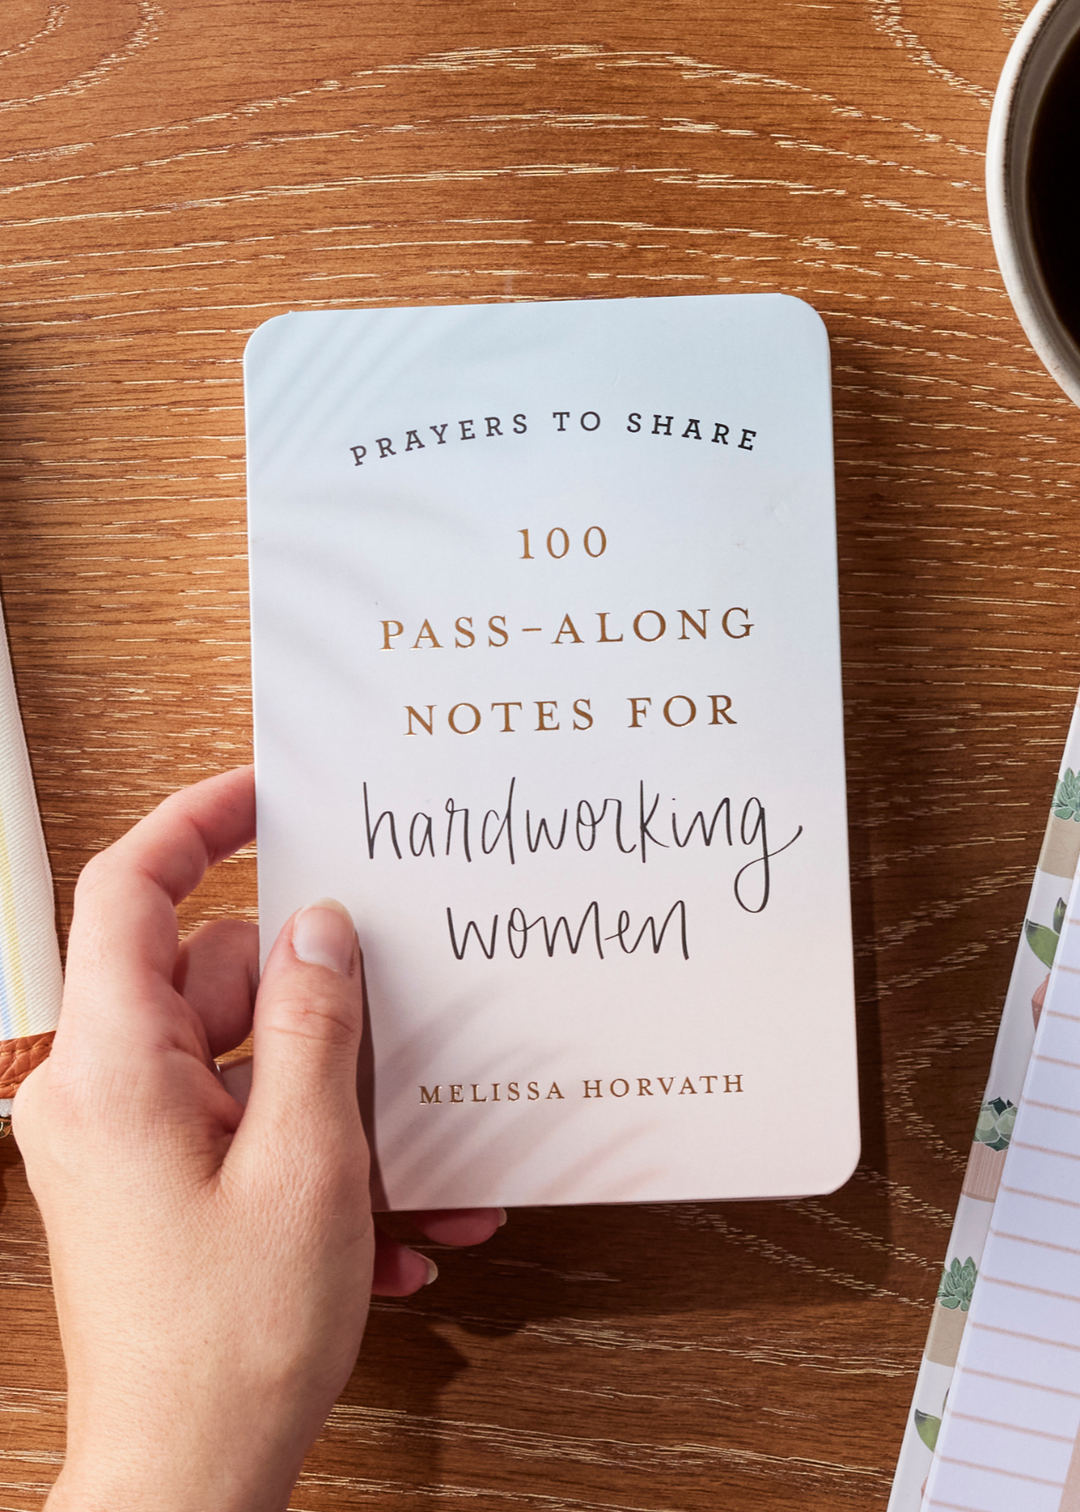 PRAYERS TO SHARE
100
PASS-ALONG
NOTES FOR
hardworking
women
MELISSA HORVATH